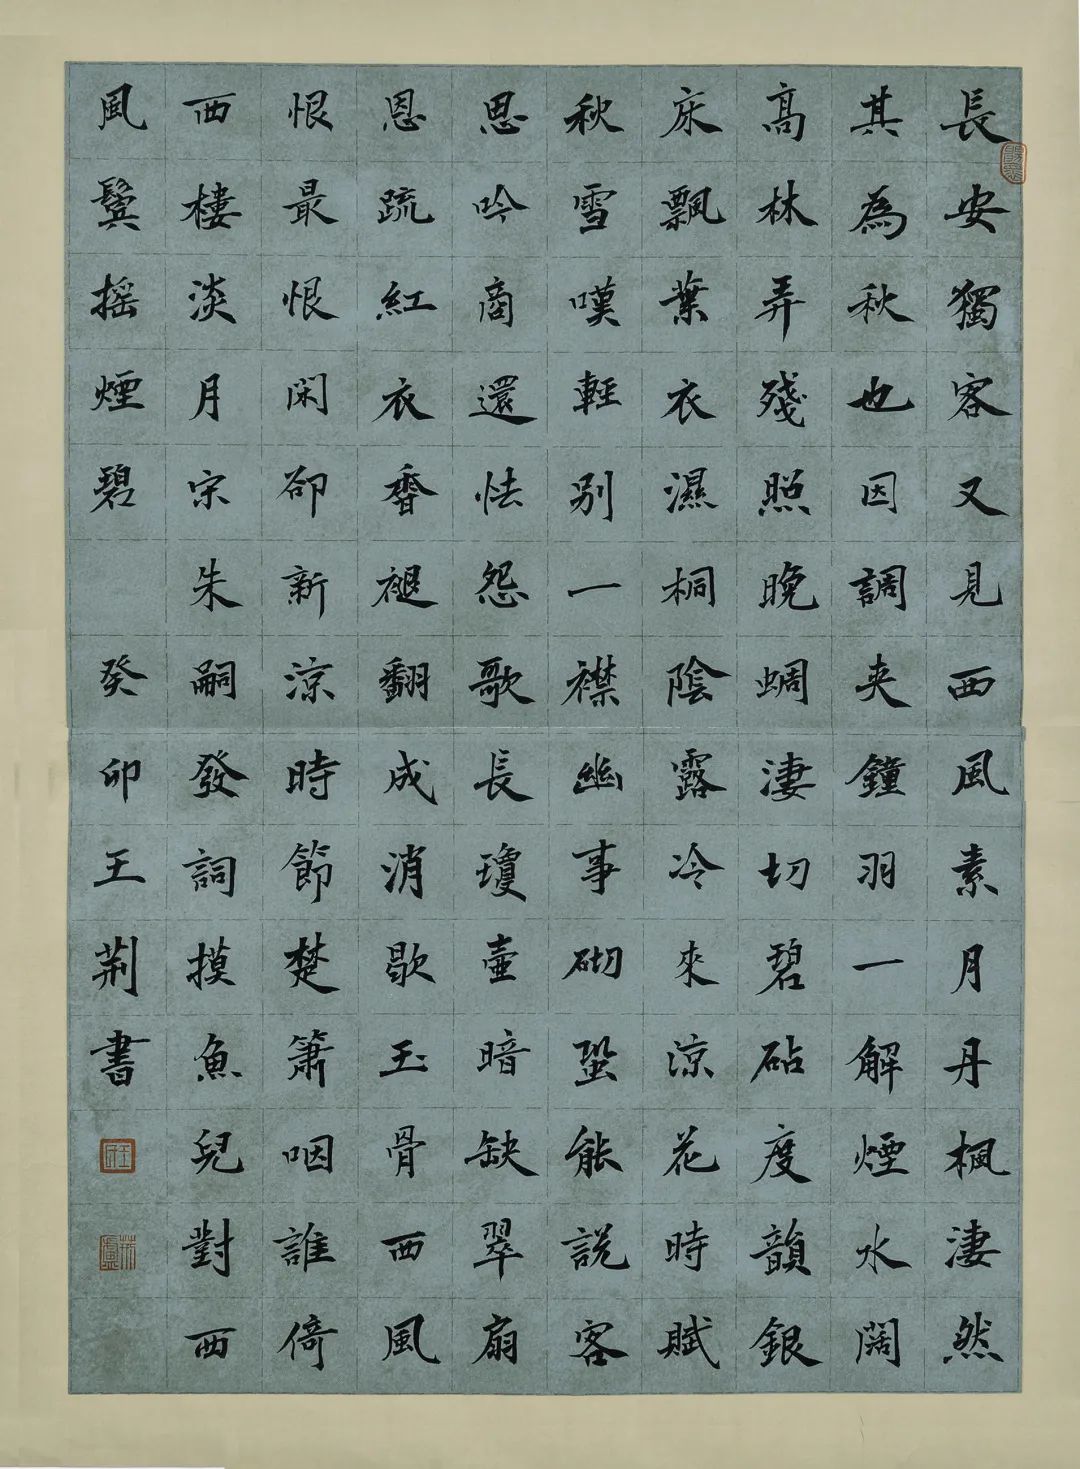 長安獨客又見西風素月丹楓淒然
其為秋也因調夾鐘羽一解煙水闊
高林弄殘照晚蜩淒切碧砧度韻銀
床飄葉衣濕桐陰露冷來涼花時賦
秋雪嘆輕別一襟幽事砌蛩能說客
思吟商還怯怨歌長瓊壺暗缺翠扇
恩疏紅衣香褪翻成消歇玉骨西風
恨最恨閑卻新涼時節楚簫咽誰倚
西樓淡月宋朱嗣發詞摸魚兒對西
風鬓搖煙碧 癸卯王荊書